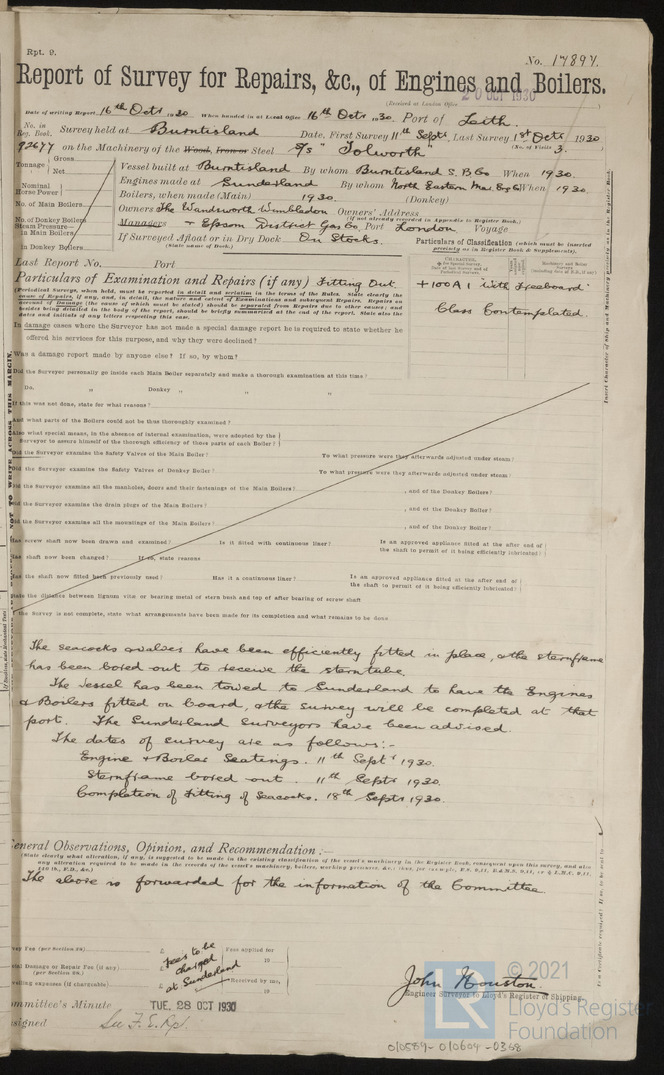 Rpt. 9.
No. 17897.
Report of Survey for Repairs, &c., of Engines and Boilers.
(Received at London Office 20 OCT 1930)
Date of writing Report 16th Octr 1930 When handed in at Local Office 16th Octr 1930. Port of Leith.
No. in Reg. Book. Survey held at Burntisland Date, First Survey 11th Septr, Last Survey 1st Octr 1930
(No. of Visits 3.
92677 on the Machinery of the Wood, Iron or Steel S/S "Tolworth"
Tonnage Gross
Net
Vessel built at Burntisland By whom Burntisland S.B Co When 1930.
Engines made at Sunderland By whom North Eastern Mar. Eng Co When 1930.
Nominal Horse Power
Boilers, when made (Main) 1930. (Donkey)
No. of Main Boilers
Owners The Wandsworth Wimbledon Owners' Address
(if not already recorded in Appendix to Register Book.)
No. of Donkey Boilers
Managers & Epsom District Gas Co. Port London Voyage
Steam Pressure in Main Boilers
If Surveyed Afloat or in Dry Dock On Stocks.
(State name of Dock.)
in Donkey Boilers
Particulars of Classification (which must be inserted precisely as in Register Book & Supplements).
Last Report No. Port
Particulars of Examination and Repairs (if any) Fitting Out
+100A1 with freeboard
Class Contemplated.
In damage cases where the Surveyor has not made a special damage report he is required to state whether he
offered his services for this purpose, and why they were declined?
Was a damage report made by anyone else? If so, by whom?
Did the Surveyor personally go inside each Main Boiler separately and make a thorough examination at this time?
Do. " Donkey " " "
If this was not done, state for what reasons?
And what parts of the Boilers could not be thus thoroughly examined?
Also what special means, in the absence of internal examination, were adopted by the
Surveyor to assure himself of the thorough efficiency of those parts of each Boiler?
Did the Surveyor examine the Safety Valves of the Main Boiler? To what pressure were they afterwards adjusted under steam?
Did the Surveyor examine the Safety Valves of Donkey Boiler? To what pressure were they afterwards adjusted under steam?
Did the Surveyor examine all the manholes, doors and their fastenings of the Main Boilers? , and of the Donkey Boilers?
Did the Surveyor examine the drain plugs of the Main Boilers? , and of the Donkey Boiler?
Did the Surveyor examine all the mountings of the Main Boilers? , and of the Donkey Boiler?
Has screw shaft now been drawn and examined? Is it fitted with continuous liner? Is an approved appliance fitted at the after end of the shaft to permit of it being efficiently lubricated?
Has shaft now been changed? If so, state reasons
Has the shaft now fitted been previously used? Has it a continuous liner? Is an approved appliance fitted at the after end of the shaft to permit of it being efficiently lubricated?
State the distance between lignum vitæ or bearing metal of stern bush and top of after bearing of screw shaft
If the Survey is not complete, state what arrangements have been made for its completion and what remains to be done
The seacocks & valves have been efficiently fitted in place, & the sternframe
has been bored out to receive the sterntube.
The vessel has been towed to Sunderland to have the Engines
& Boilers fitted on board, & the survey will be completed at that
port. The Sunderland Surveyors have been advised.
The dates of survey are as follows:-
Engine & Boiler Seatings. 11th Septr 1930.
Sternframe bored out. 11th Septr 1930.
Completion of fitting of Seacocks. 18th Septr 1930.
General Observations, Opinion, and Recommendation:—
The above is forwarded for the information of the Committee.
Survey Fee (per Section 29) £ Fees applied for
Fees to be charged at Sunderland
Special Damage or Repair Fee (if any) (per Section 29.) £
Travelling expenses (if chargeable) £ Received by me,
John Houston.
Engineer Surveyor to Lloyd's Register of Shipping.
Committee's Minute TUE. 28 OCT 1930
Assigned See F.E. Rpt.
© 2021
Lloyd's Register
Foundation
010584-010604-0368